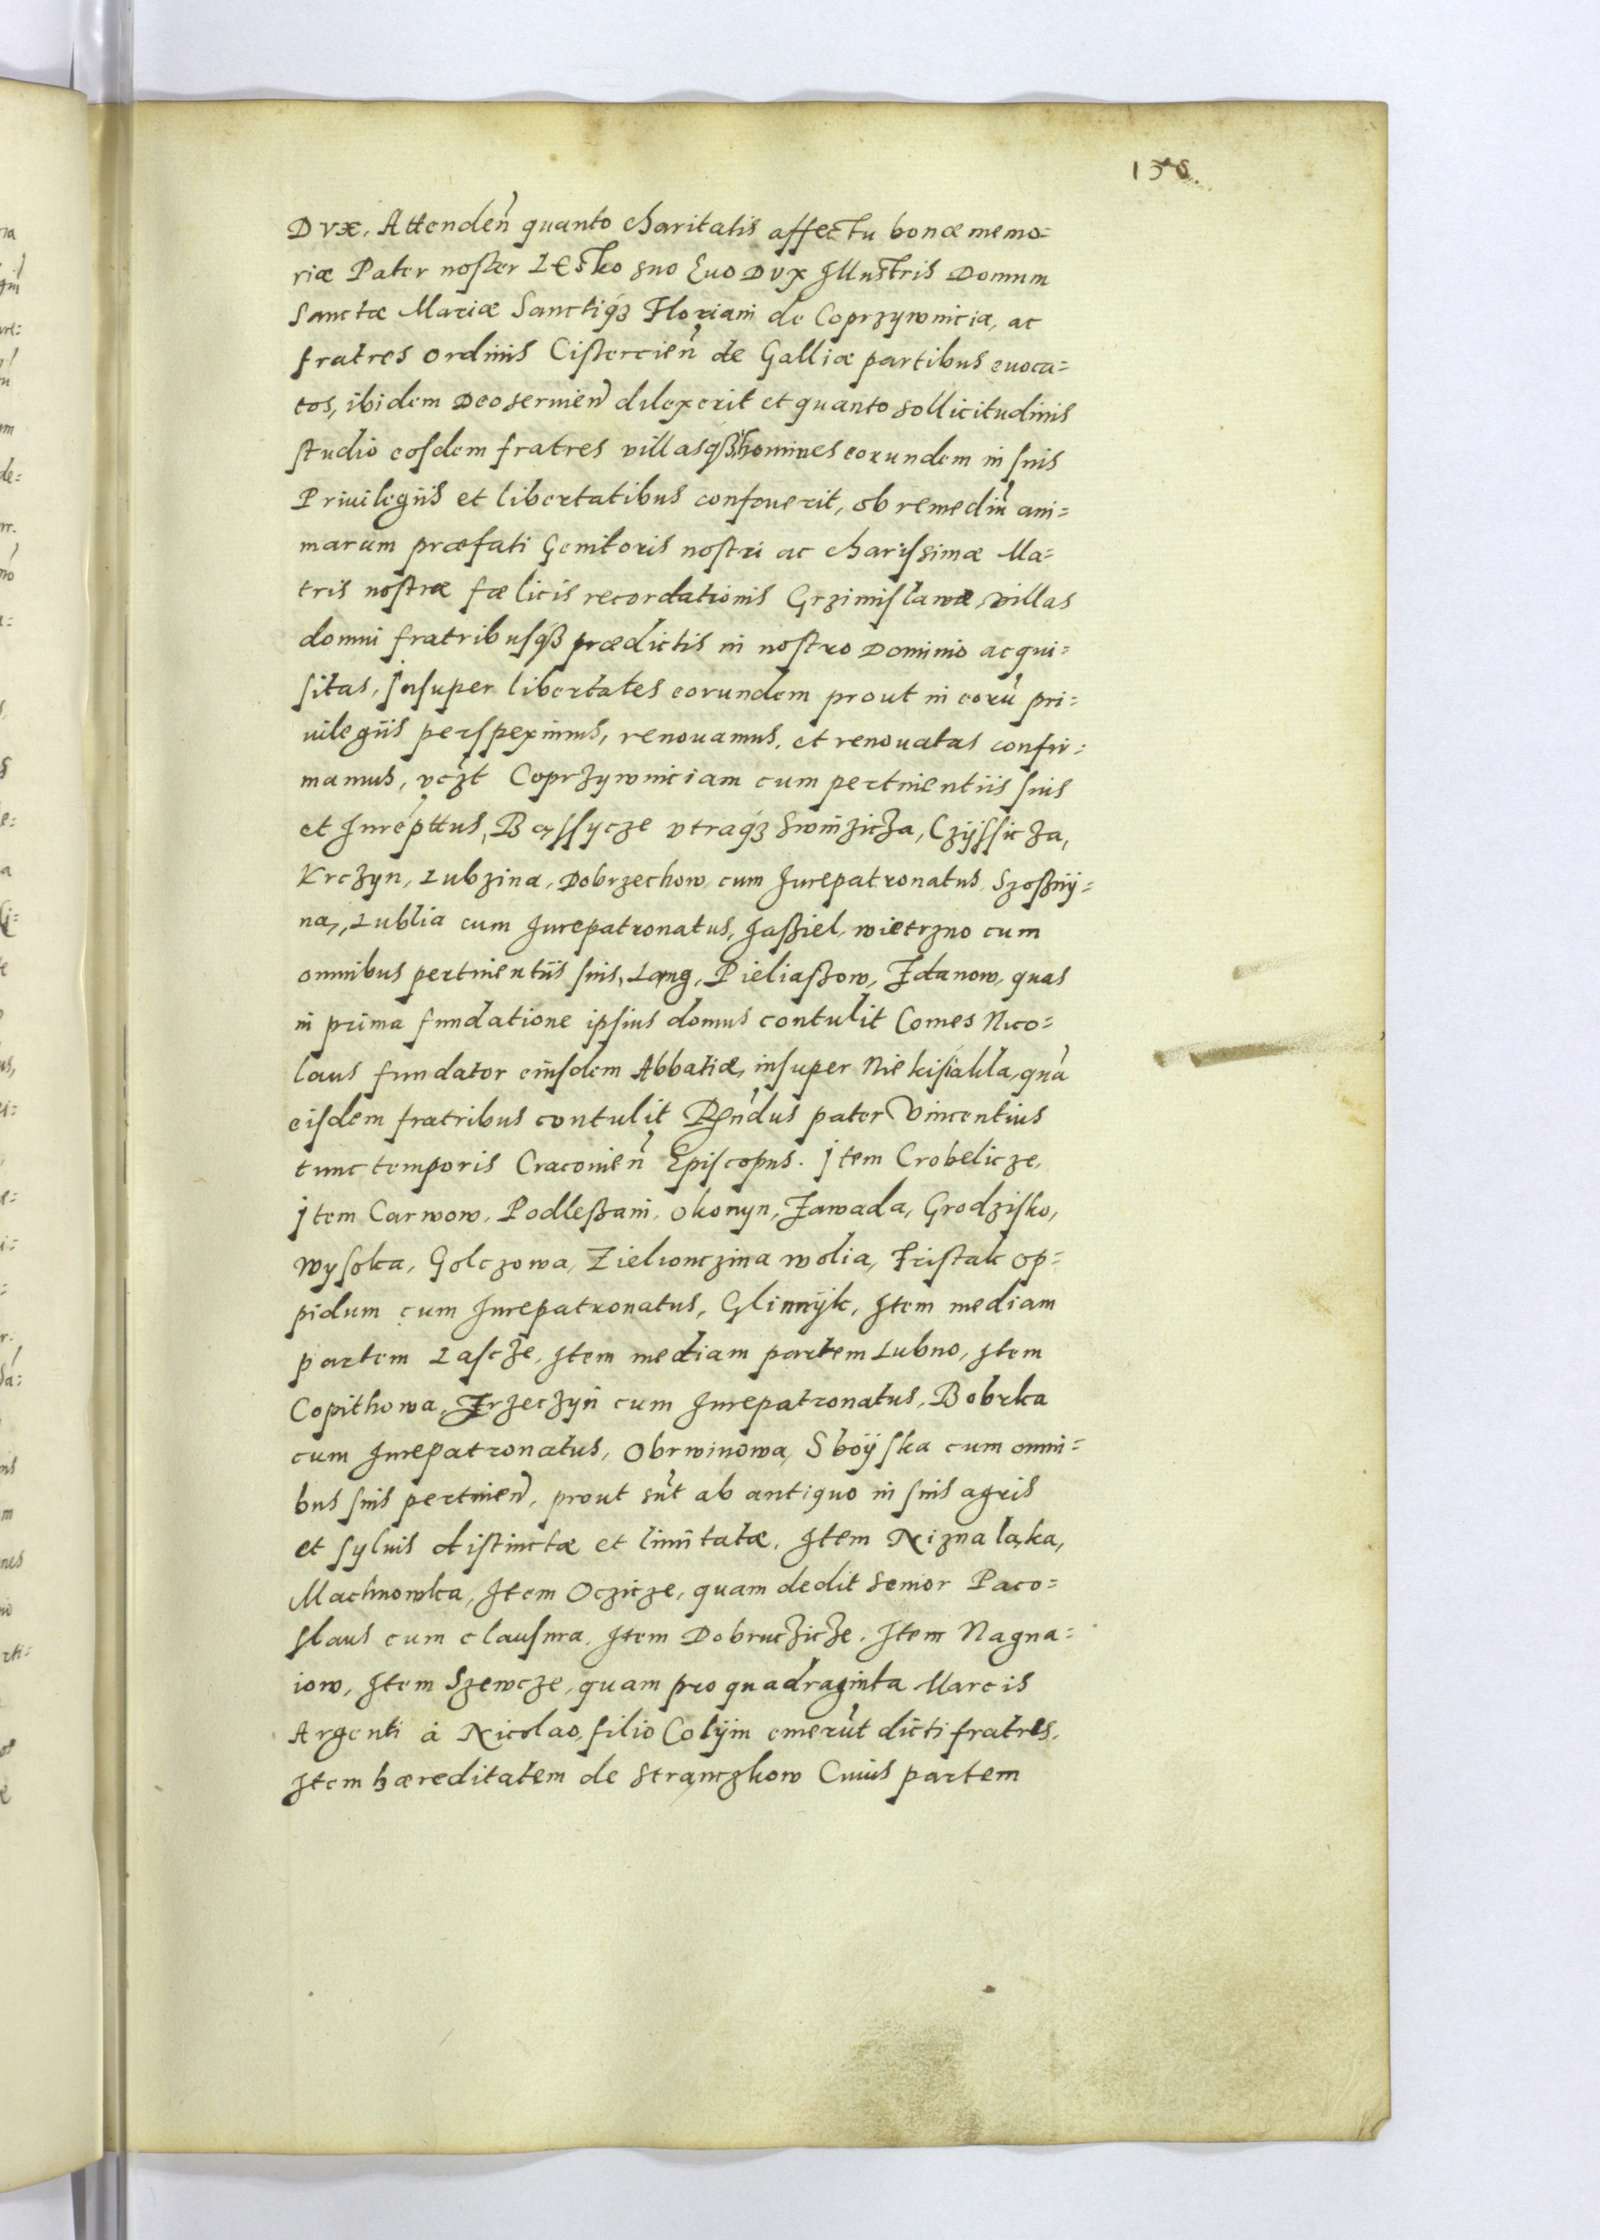 136.
Dvx. Attendeñ quanto charitatis affectu bonæ memo=
riæ Pater noster Lestko suo Euo Dvx Illustris Domum
Sanctæ Mariæ Sanctiq₃ Floriani de Coprzywnicia, ac
fratres ordinis Cistercieñ de Galliæ partibus euoca=
tos, ibidem Deo seruień dilexerit et quanto sollicitudinis
studio eosdem fratres villasq₃ homines eorundem in suis
Priuilegiis et libertatibus confouerit, ob remediū ani=
marum præfati Genitoris nostri ac charissimæ Ma=
tris nostræ fœlicis recordationis Grzimislawæ, villas
domui fratribusq₃ prædictis in nostro Dominio acqui=
sitas, insuper libertates eorundem prout in eorū pri=
uilegiis perspeximus, renouamus, et renouatas confir=
mamus, vczt Coprzywniciam cum pertinentiis suis
et Jurepttus, Bossycze vtraq₃ Swinzicza, Czyssicza,
Krczyn, Lubzina, Dobrzechow cum Jurepatronatus, Szoßny=
na, Lublia cum Jurepatronatus, Jaßiel, wietrzno cum
omnibus pertinentiis suis, Ląng, Pieliaßzow, Zdanow, quas
in prima fundatione ipsius domus contulit Comes Nico=
laus fundator eiusdem Abbatiæ, insuper Niekisialka, quā
eisdem fratribus contulit Rñdus pater Vincentius
tunc temporis Cracouieñ Episcopus. Item Crobelicze,
Item Carwow, Podleßani, Okonyn, Zawada, Grodzisko,
Wysoka, Golczowa, Zielionczina wolia, Fristak op=
pidum cum Jurepatronatus, Glinnÿk, Item mediam
partem Lascze, Item mediam partem Lubno, Item
Copithowa, Zrzeczyn cum Jurepatronatus, Bobrka
cum Jurepatronatus, Obrwinowa, Sbóÿska cum omni=
bus suis pertinēn, prout sūt ab antiquo in suis agris
et syluis distinctæ et limitatæ. Item Nizna ląka,
Machnowka, Item Oczicze, quam dedit Senior Paco=
slaus cum clausura. Item Dobruczicze. Item Nagna=
iow, Item Szewcze, quam pro quadraginta Marcis
Argenti à Nicolao, filio Colÿm emerūt dicti fratres.
Item hæreditatem de Stranczkow Cuius partem